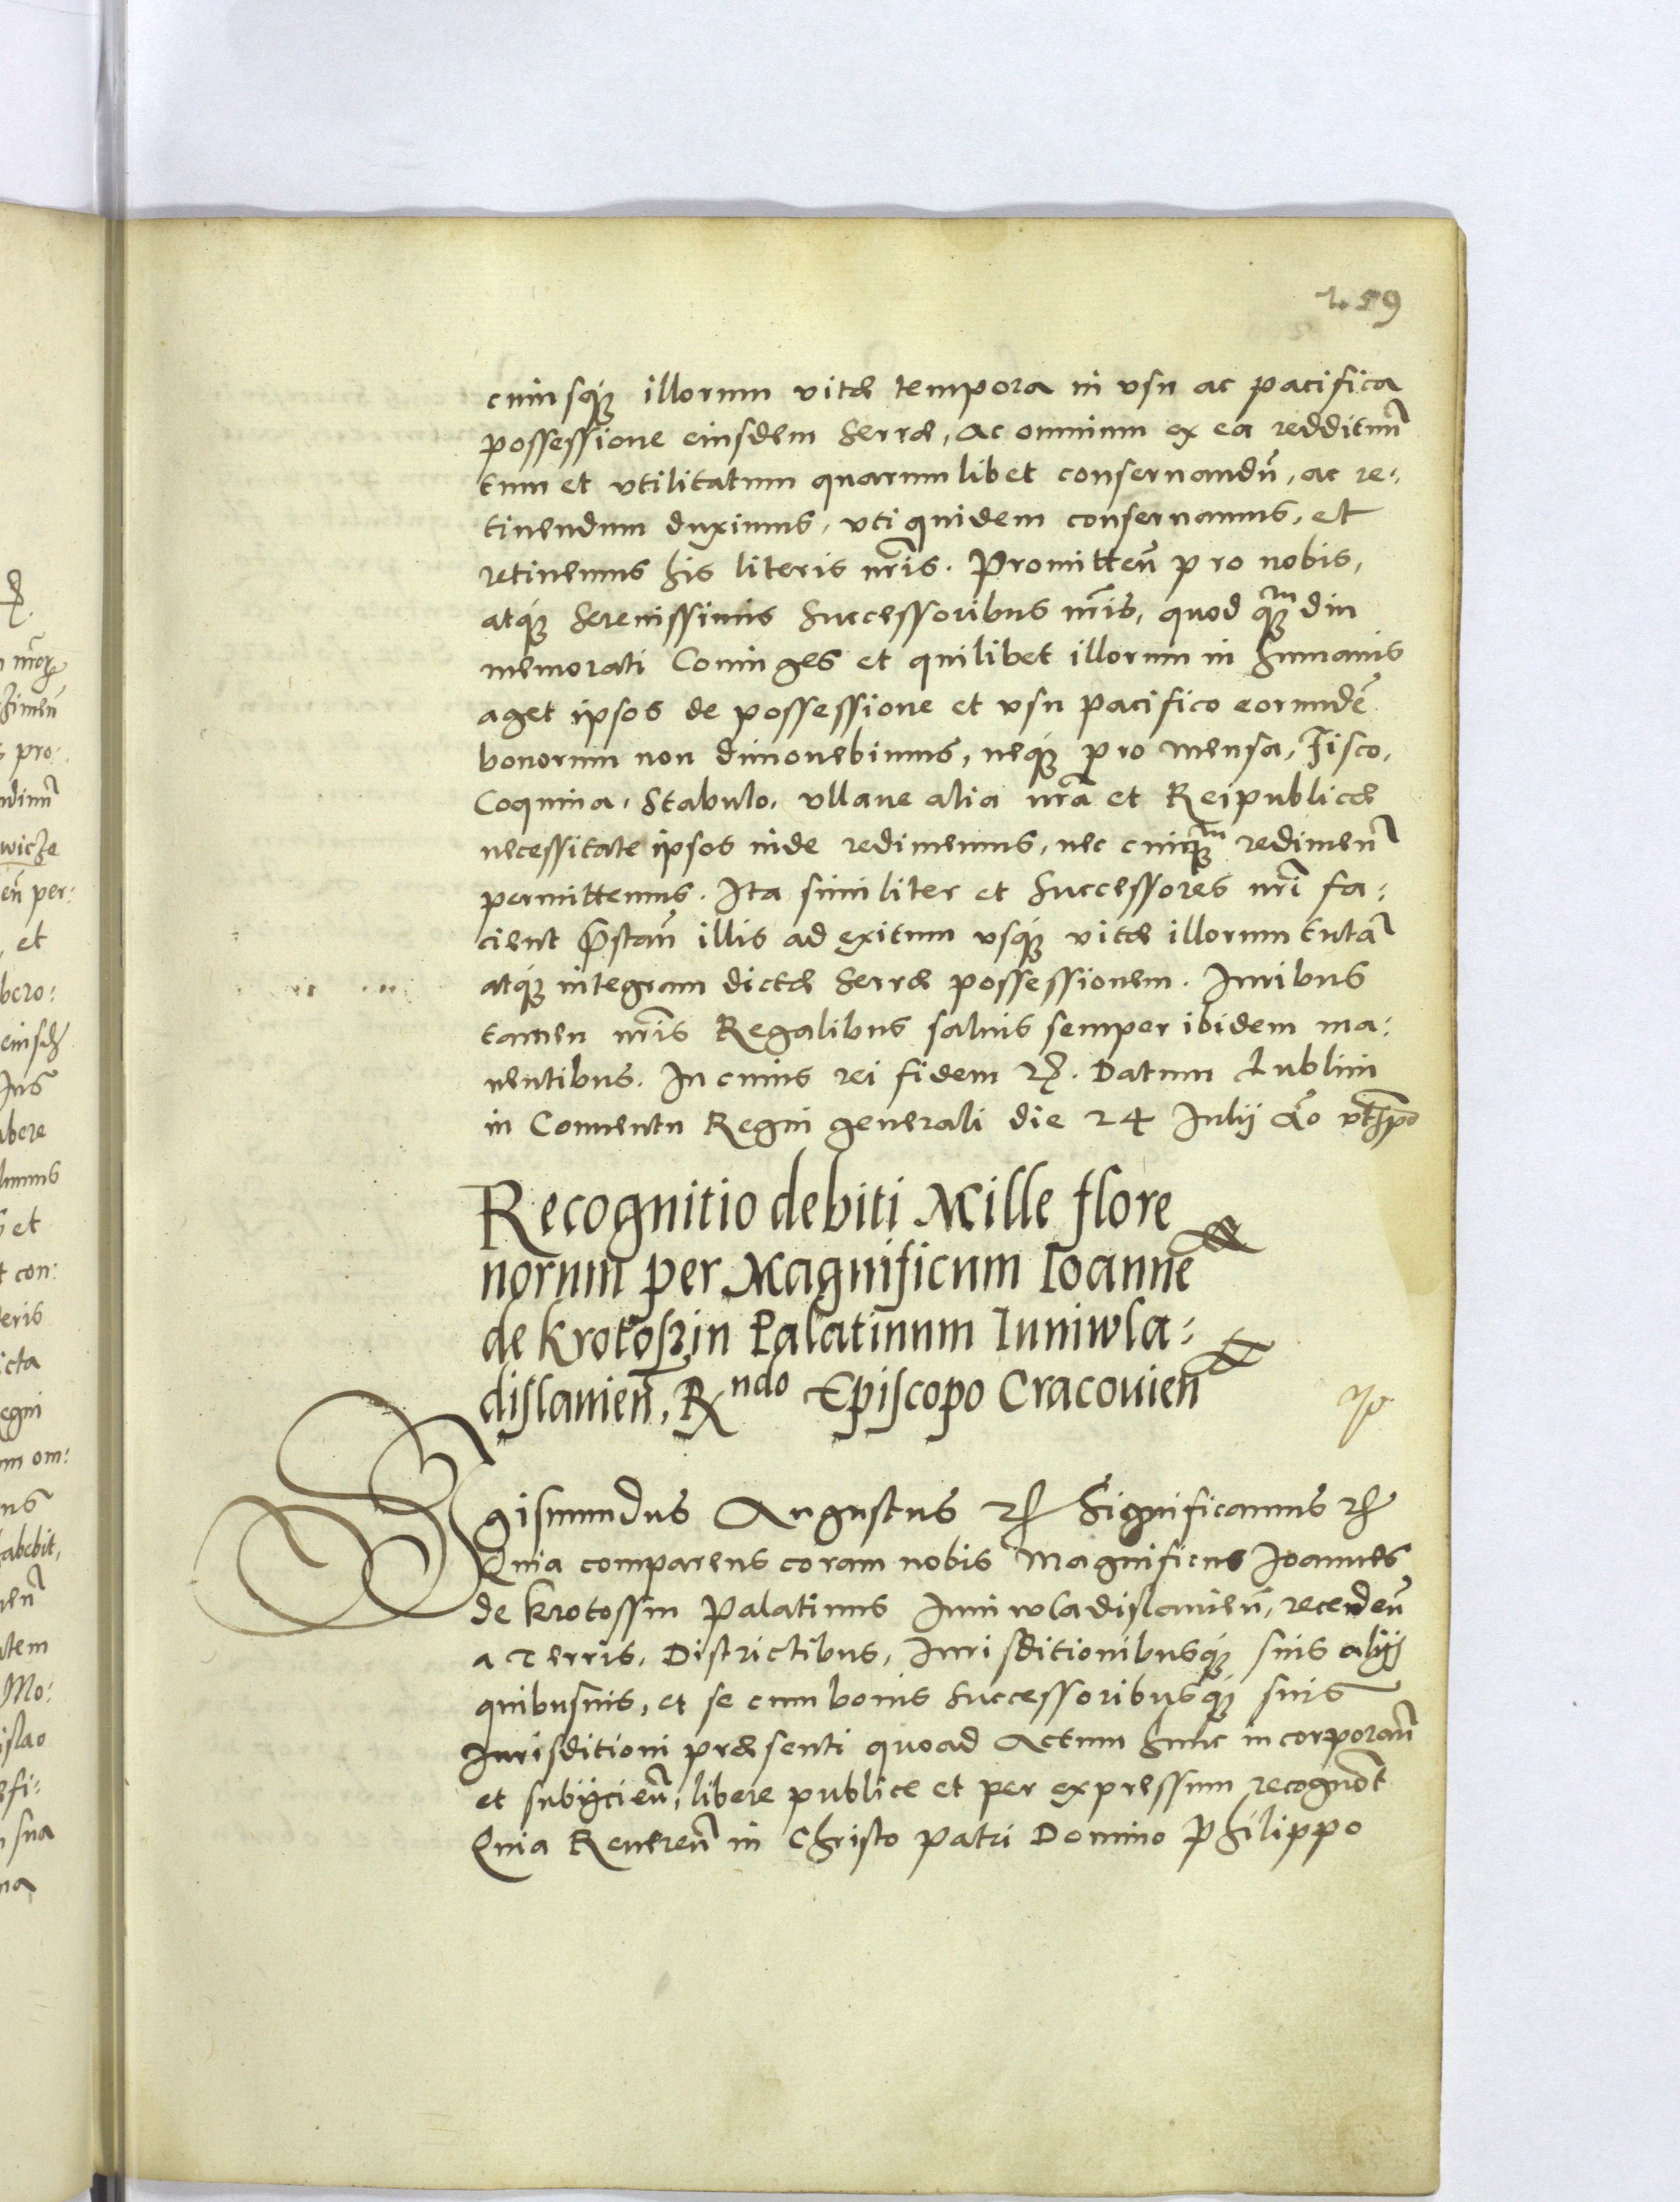 159
cuiusq́ue illorum vitæ tempora in vsu ac pacifica
possessione eiusdem Serræ, ac omnium ex ea reddituũ
tum et vtilitatum quarumlibet conseruandũ, ac re:
tinendum duximus, vti quidem conseruamus, et
retinemus his literis nr̃is. Promitteñ pro nobis,
atq́ue Serenissimis Successoribus nr̃is, quod quamdiu
memorati Coniuges et quilibet illorum in humanis
aget ipsos de possessione et vsu pacifico eorundẽ
bonorum non dimouebimus, neq́ue pro mensa, Fisco,
Coquina, Stabulo, vllaue alia nr̃a et Reipublicæ
necessitate ipsos inde redimemus, nec cuiquam redimeñ
permittemus. Ita similiter et Successores nr̃i fa:
cient p̃stañ illis ad exitum vsq́ue vitæ illorum tutã
atq́ue integram dictæ Serræ possessionem. Iuribus
tamen nr̃is Regalibus saluis semper ibidem ma:
nentibus. In cuius rei fidem etc. Datum Lublini
in Conuentu Regni generali die 24 Iulij Ao vt supra
Recognitio debiti Mille flore
norum per Magnificum Ioannẽ
de Krotoszin Palatinum Iuniwla:
dislauieñ, Rndo Episcopo Cracouieñ
Sigismundus Augustus etc Significamus etc
Quia comparens coram nobis Magnificus Ioannes
de Krotossin Palatinus Iuniwladislauieñ, recedeñ
a Terris, Districtibus, Iurisditionibusq́ue suis alijs
quibusuis, et se cum bonis Successoribusq́ue suis
Iurisditioni præsenti quoad Actum hunc incorporañ
et subijcieñ, libere publice et per expressum recognõt
Quia Reuereñ in Christo Patri Domino Philippo